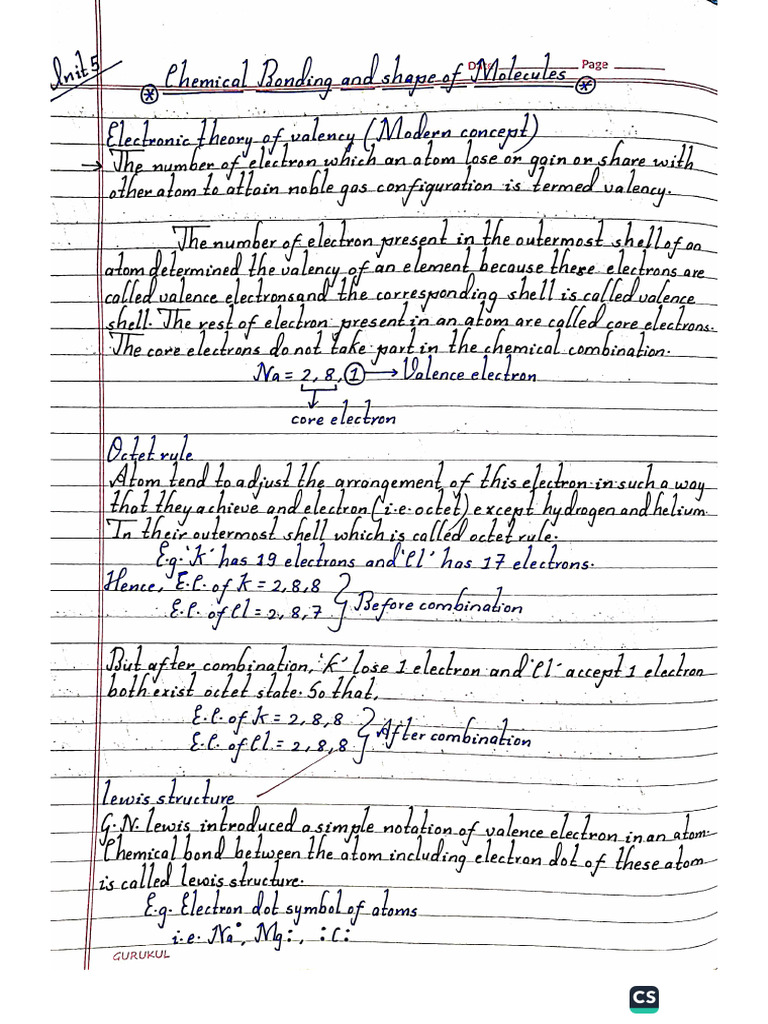 Unit 5
Date Page
* Chemical Bonding and shape of Molecules *
Electronic theory of valency (Modern concept)
→ The number of electron which an atom lose or gain or share with
other atom to attain noble gas configuration is termed valency.
The number of electron present in the outermost shell of an
atom determined the valency of an element because these electrons are
called valence electrons and the corresponding shell is called valence
shell. The rest of electron present in an atom are called core electrons.
The core electrons do not take part in the chemical combination.
Na = 2, 8, 1 → Valence electron
core electron
Octet rule
Atom tend to adjust the arrangement of this electron in such a way
that they achieve and electron (i.e. octet) except hydrogen and helium.
In their outermost shell which is called octet rule.
E.g. 'K' has 19 electrons and 'Cl' has 17 electrons.
Hence, E.C. of K = 2,8,8
E.C. of Cl = 2,8,7 } Before combination
But after combination, 'K' lose 1 electron and 'Cl' accept 1 electron
both exist octet state. So that,
E.C. of K = 2,8,8
E.C. of Cl = 2,8,8 } After combination
lewis structure
G.N. lewis introduced a simple notation of valence electron in an atom.
Chemical bond between the atom including electron dot of these atom
is called lewis structure.
E.g. Electron dot symbol of atoms
i.e. Na•, Mg:, :C:
GURUKUL
CS